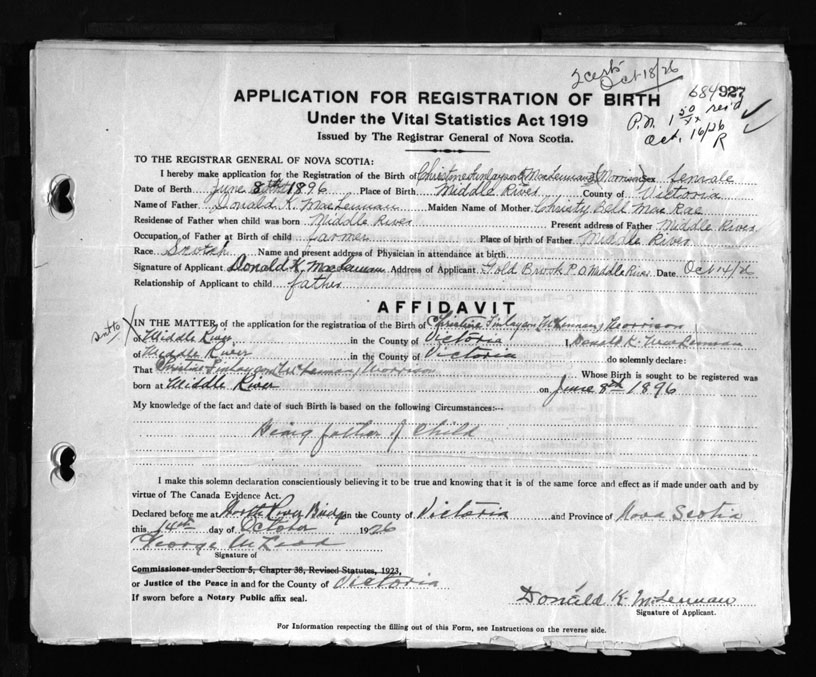 2 certs
Oct 18/26
684927
P.N. 1 50/xx rec'd
Oct. 16/26
R
APPLICATION FOR REGISTRATION OF BIRTH
Under the Vital Statistics Act 1919
Issued by The Registrar General of Nova Scotia.
TO THE REGISTRAR GENERAL OF NOVA SCOTIA:
I hereby make application for the Registration of the Birth of Christine Finlayson (MacLennan) (Morrison) Sex female
Date of Birth June 8th 1896 Place of Birth Middle River County of Victoria
Name of Father Donald K. MacLennan Maiden Name of Mother Christy Bell MacRae
Residence of Father when child was born Middle River Present address of Father Middle River
Occupation of Father at Birth of child farmer Place of birth of Father Middle River
Race Scotch Name and present address of Physician in attendance at birth
Signature of Applicant Donald K. MacLennan Address of Applicant Gold Brook P.O. Middle River Date Oct 14/26
Relationship of Applicant to child father
AFFIDAVIT
IN THE MATTER of the application for the registration of the Birth of Christine Finlayson McLennan, Morrison
of Middle River, in the County of Victoria I, Donald K. MacLennan
of Middle River in the County of Victoria do solemnly declare:
That Christine Finlayson McLennan, Morrison Whose Birth is sought to be registered was
born at Middle River on June 8th 1896
My knowledge of the fact and date of such Birth is based on the following Circumstances:--
Being father of Child
I make this solemn declaration conscientiously believing it to be true and knowing that it is of the same force and effect as if made under oath and by
virtue of The Canada Evidence Act.
Declared before me at North River Bridge in the County of Victoria and Province of Nova Scotia
this 14th day of October 1926
George McLeod
Signature of
Commissioner under Section 5, Chapter 38, Revised Statutes, 1923,
or Justice of the Peace in and for the County of Victoria
If sworn before a Notary Public affix seal.
Donald K. McLennan
Signature of Applicant.
For Information respecting the filling out of this Form, see Instructions on the reverse side.